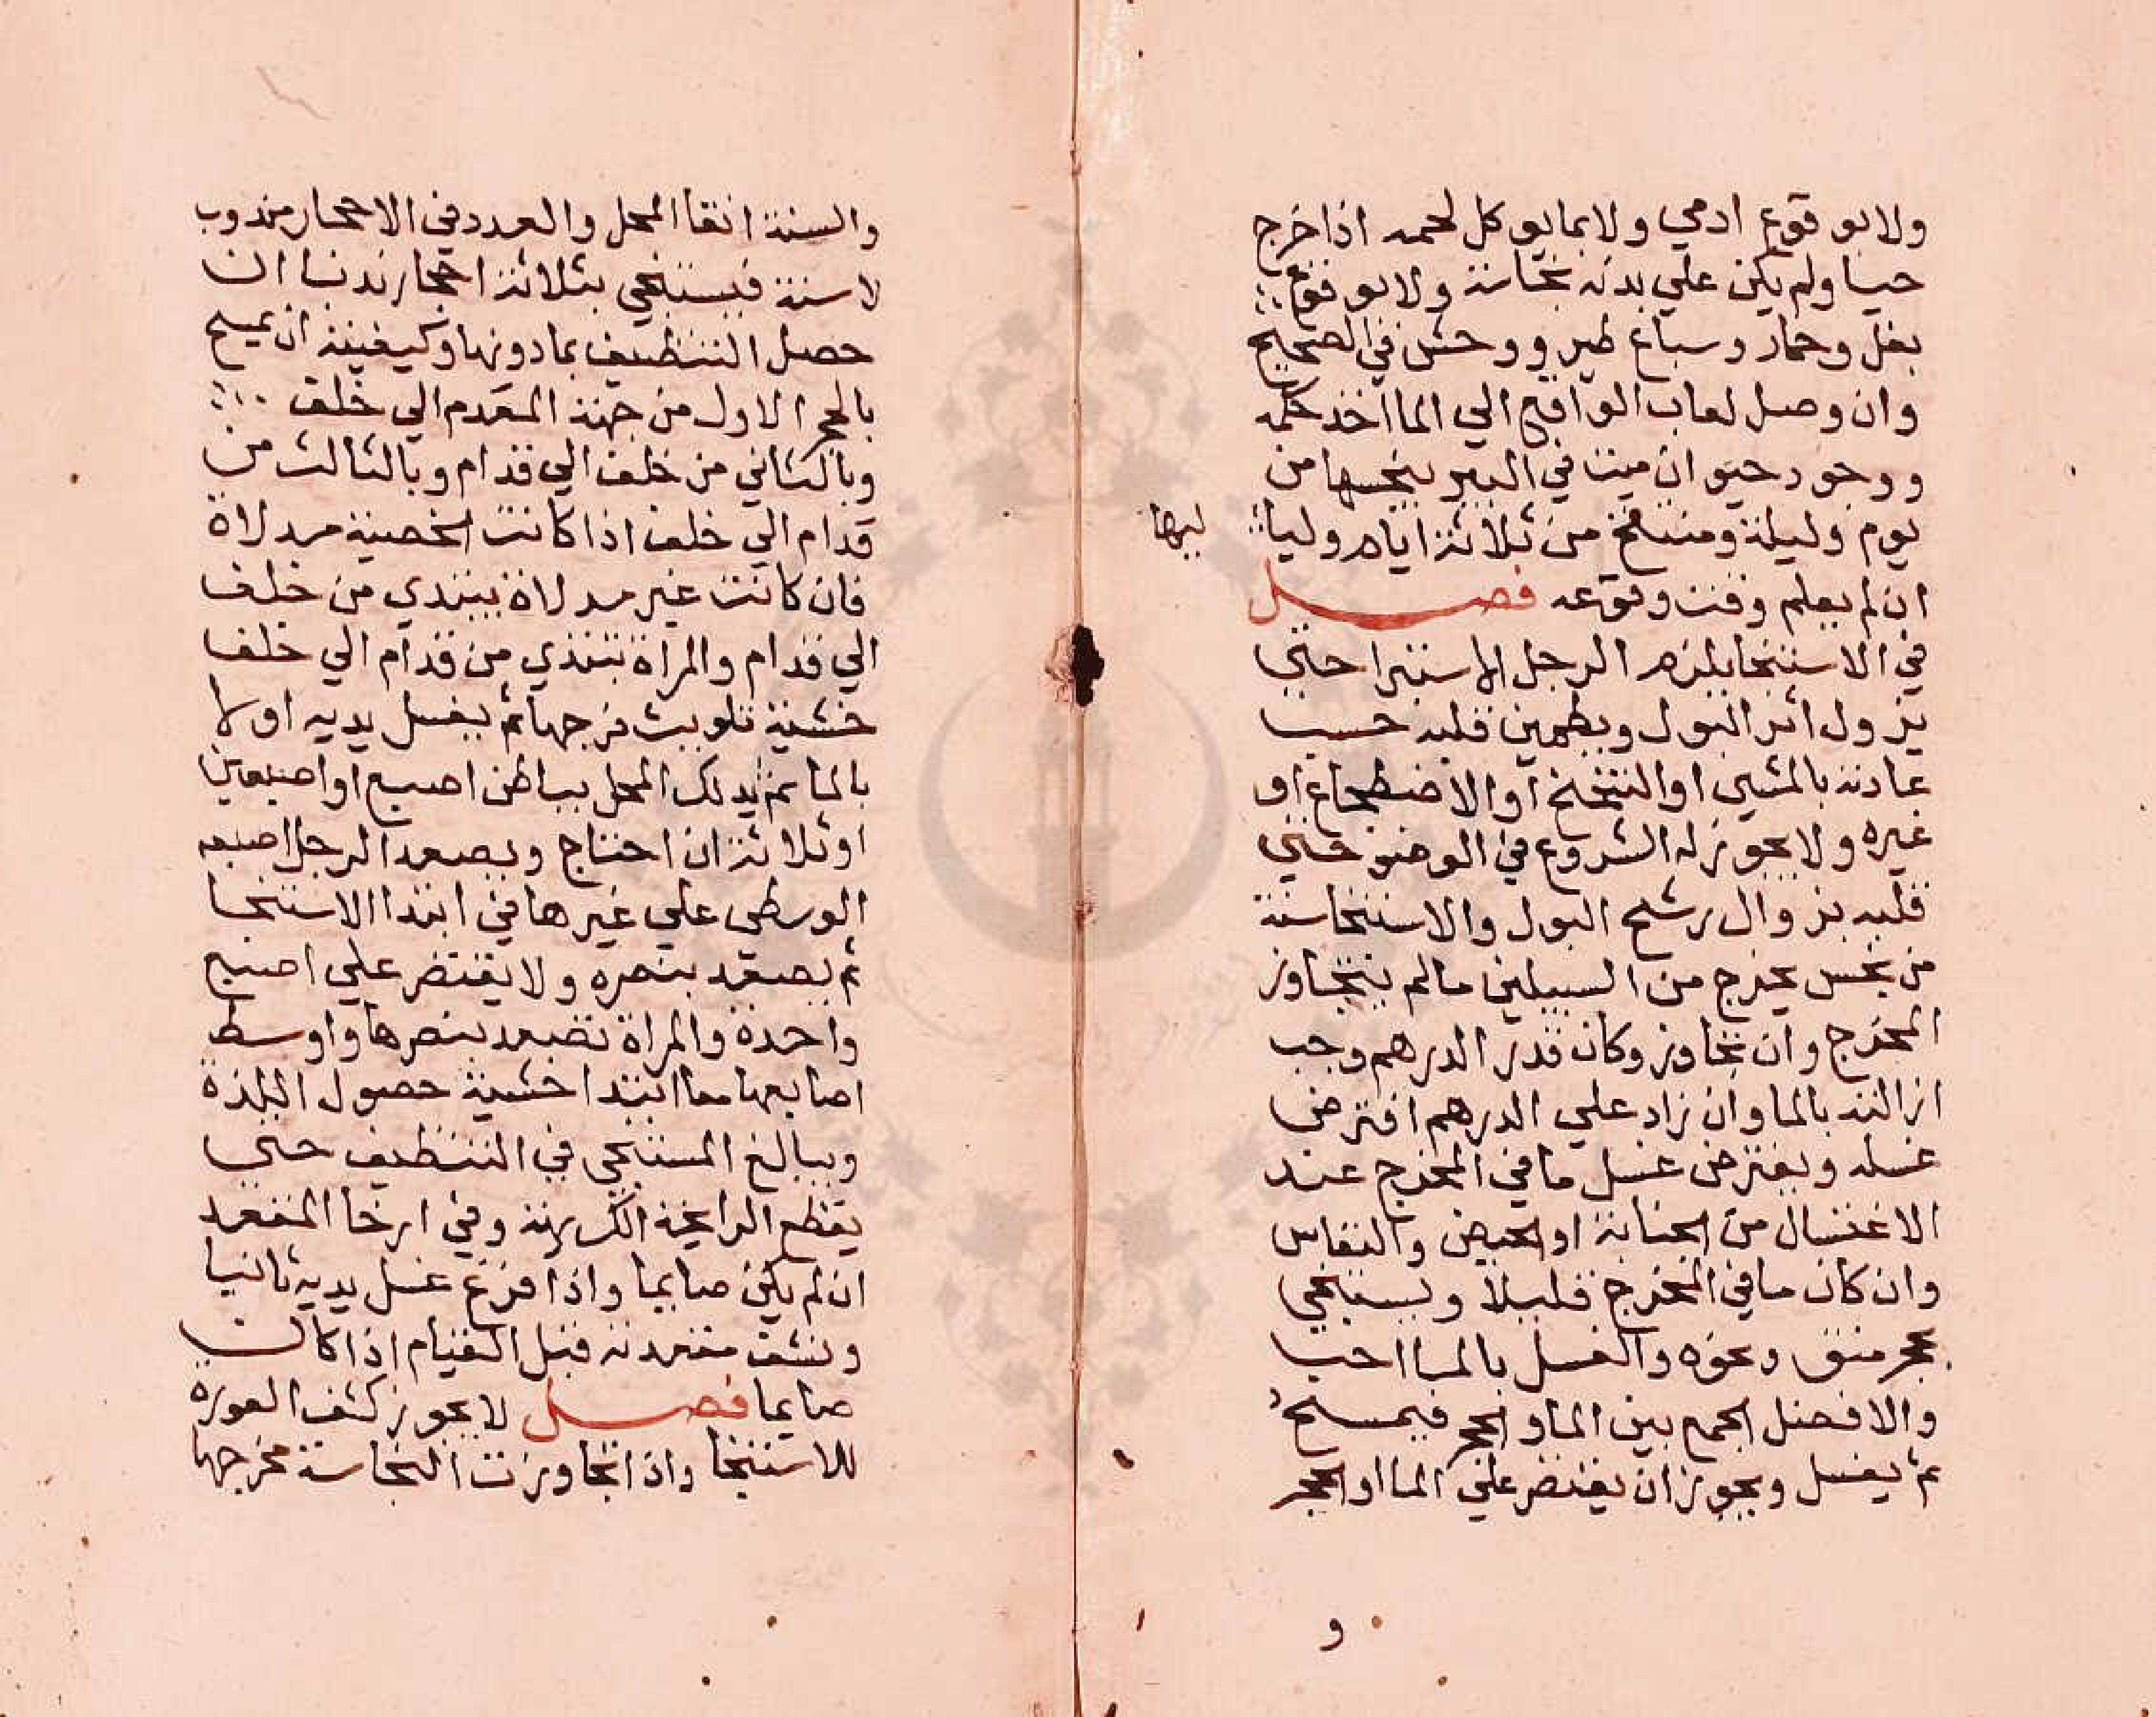 ولا بوقوع ادمي ولا بما يوكل لحمه اذا خرج
حيا ولم يكن علي بدنه نجاسة ولا بوقوع
بغل وحمار وسباع طير ووحش في الصحيح
وان وصل لعاب الواقع الي الما اخذ حكمه
ووجود حيوان ميت في البير ينجسها من
يوم وليلة ومنتفخ من ثلاثة ايام وليا
ليها
ان لم يعلم وقت وقوعه فصل
في الاستنجا يلزم الرجل الاستبرا حتي
يزول اثر البول ويطمين قلبه حسب
عادته بالمشي او التنحنح او الاضطجاع او
غيره ولا يجوز له الشروع في الوضو حتي
قلبه بزوال رشح البول والاستنجا سنة
من نجس يخرج من السبيلين ما لم يتجاوز
المخرج وان تجاوز وكان قدر الدرهم وجب
ازالته بالما وان زاد علي الدرهم افترض
غسله ويفترض غسل ما في المخرج عند
الاغتسال من الجنابة او الحيض والنفاس
وان كان ما في المخرج قليلا ويستنجي
بحجر منق ونحوه والغسل بالما احب
والافضل الجمع بين الما والحجر فيمسح
ثم يغسل ويجوز ان يقتصر علي الما او الحجر
و
والسنة انقا المحل والعدد في الاحجار مندوب
لا سنة فيستنجي بثلاثة احجار ندبا ان
حصل التنظيف بما دونها وكيفيته ان يمسح
بالحجر الاول من جهة المقدم الي خلف
وبالثاني من خلف الي قدام وبالثالث من
قدام الي خلف اذا كانت الخصية مدلاة
فان كانت غير مدلاة يبتدي من خلف
الي قدام والمراة تبتدي من قدام الي خلف
خشية تلويث فرجها ثم يغسل يديه اولا
بالما ثم يدلك المحل بباطن اصبع او اصبعين
او ثلاثة ان احتاج ويصعد الرجل اصبعه
الوسطي علي غيرها في ابتدا الاستنجا
ثم يصعد بنصره ولا يقتصر علي اصبع
واحدة والمراة تصعد بنصرها واوسط
اصابعها معا ابتدا خشية حصول اللذة
ويبالغ المستنجي في التنظيف حتي
يقطع الرايحة الكريهة وفي ارخا المقعد
ان لم يكن صايما واذا فرغ غسل يديه ثانيا
ونشف مقعدته قبل القيام اذا كان
صايما فصل لا يجوز كشف العورة
للاستنجا واذا تجاوزت النجاسة مخرجها